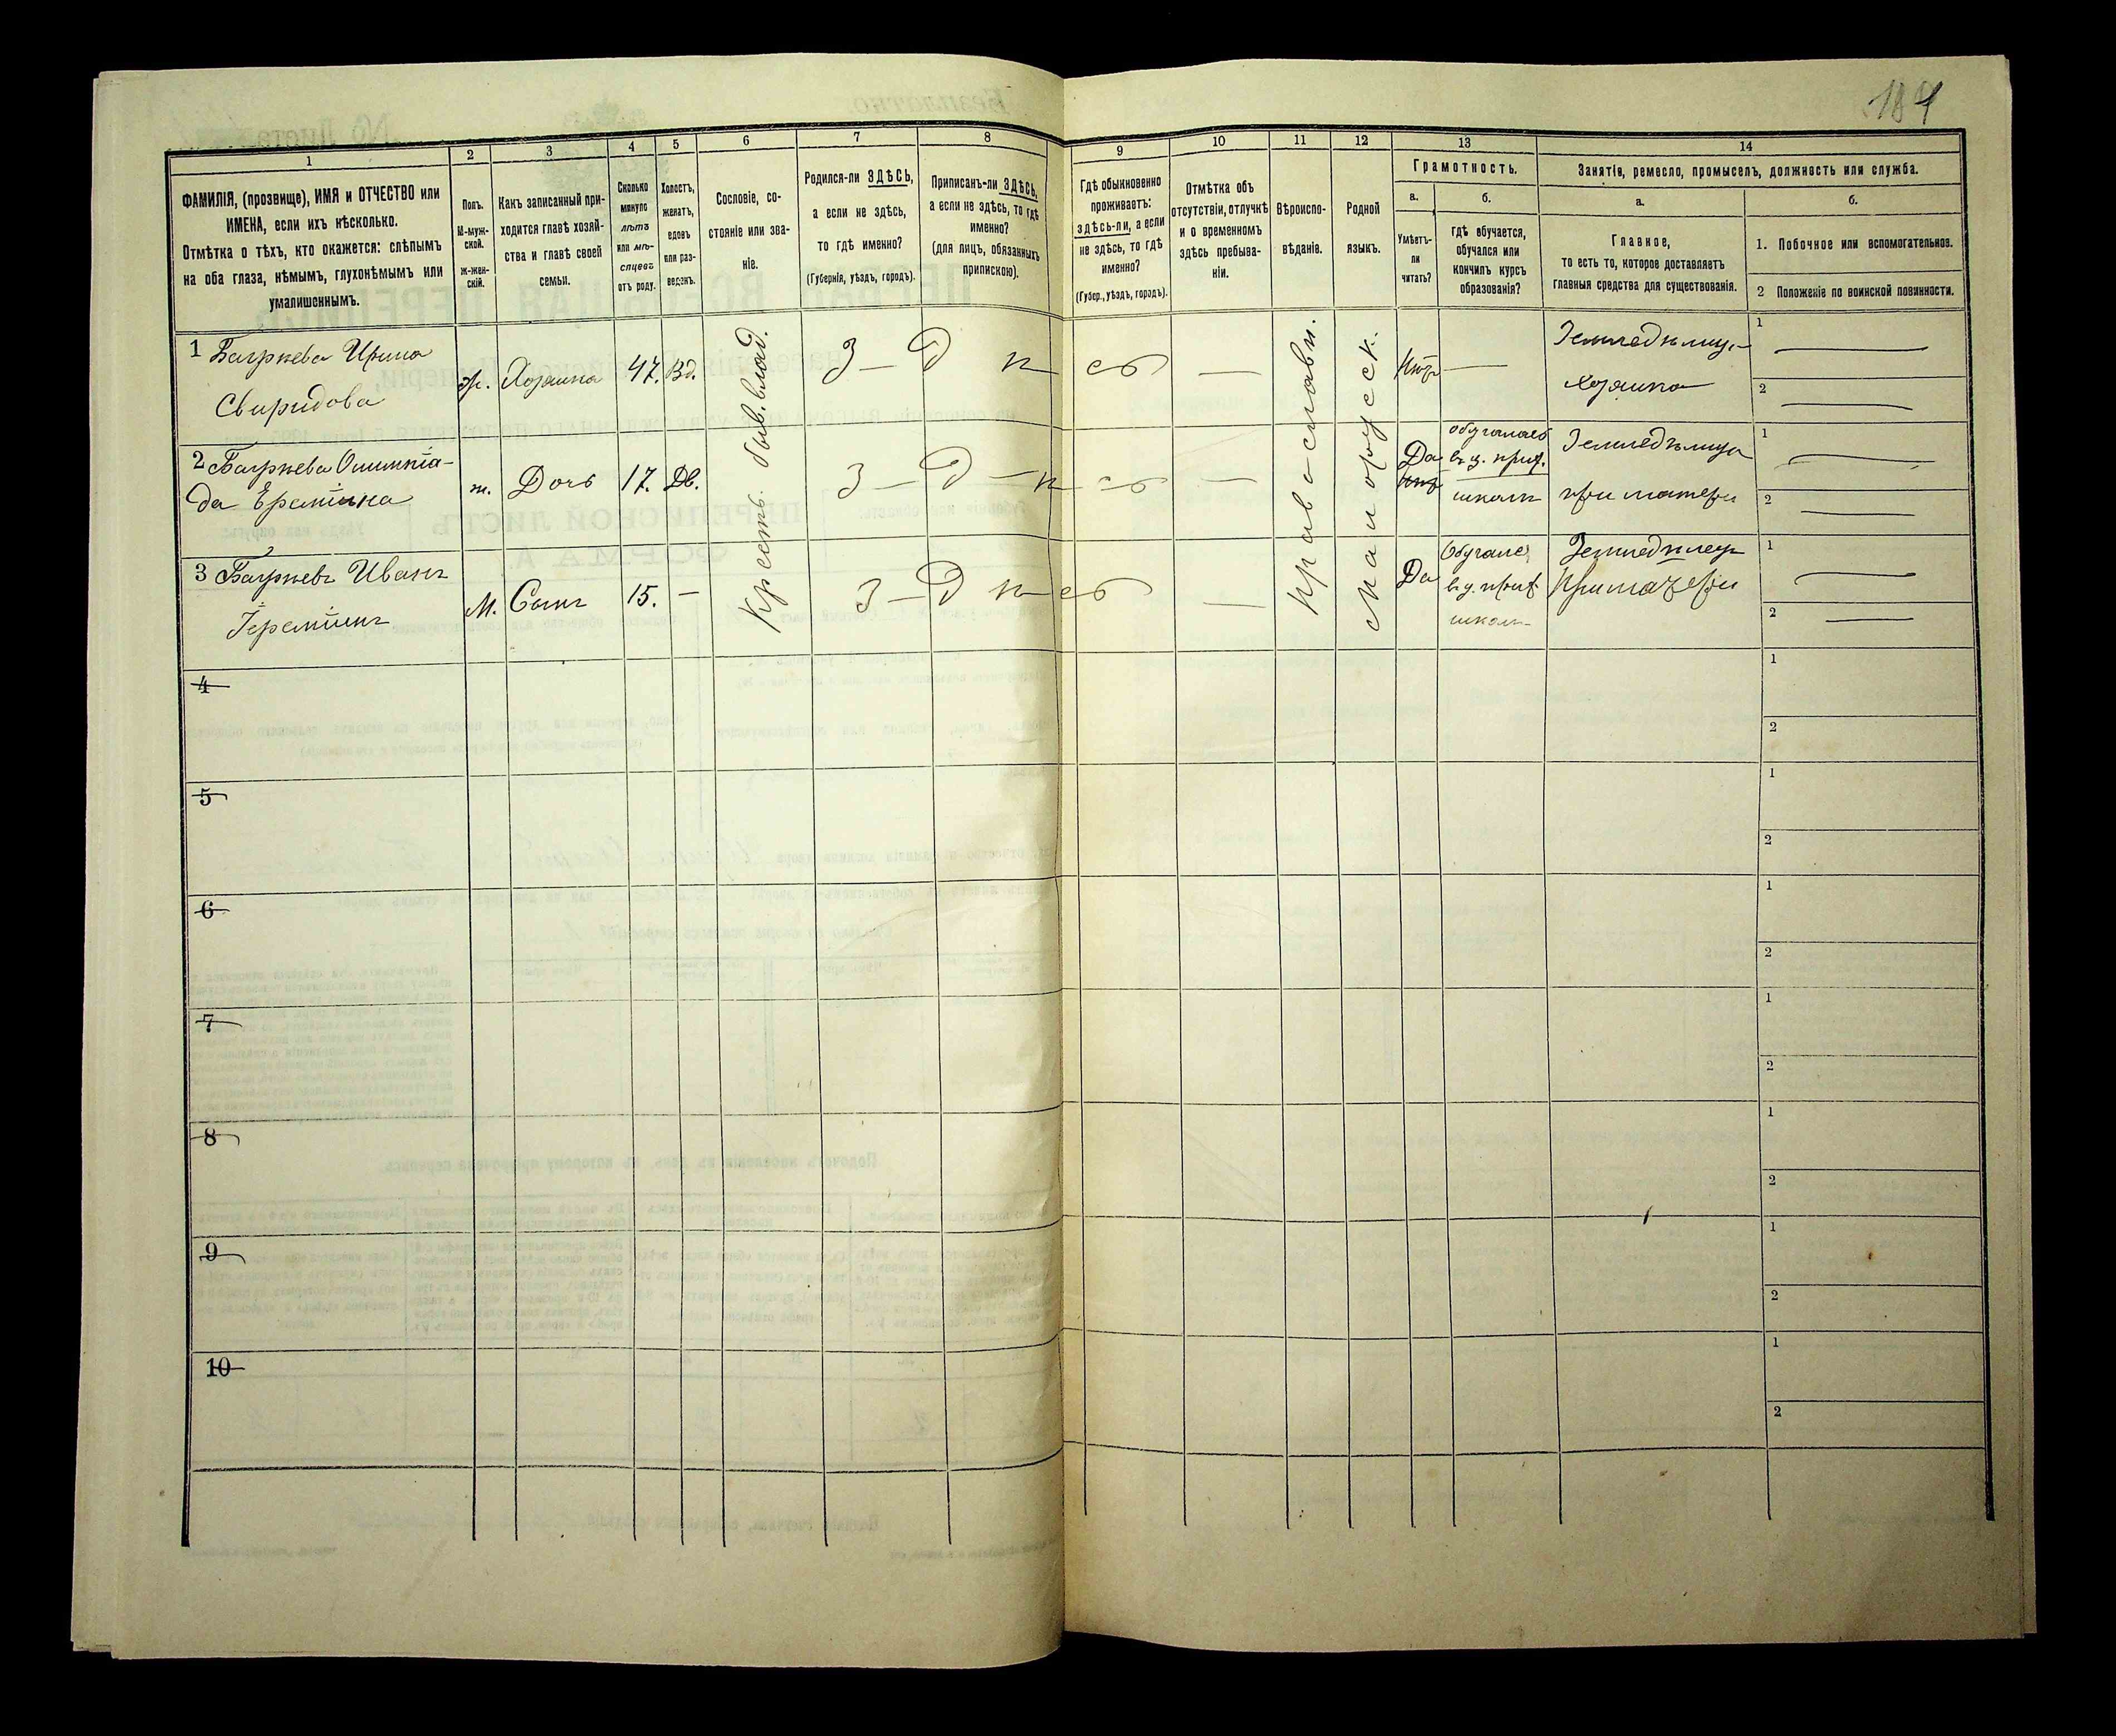 184
1 2 3 4 5 6 7 8 9 10 11 12 13 14
ФАМИЛІЯ, (прозвище), ИМЯ и ОТЧЕСТВО или
ИМЕНА, если ихъ нѣсколько.
Отмѣтка о тѣхъ, кто окажется: слѣпымъ
на оба глаза, нѣмымъ, глухонѣмымъ или
умалишеннымъ.
Полъ.
М-муж-
ской.
ж-жен-
скій.
Какъ записанный при-
ходится главѣ хозяй-
ства и главѣ своей
семьи.
Сколько
минуло
лѣтъ
или мѣ-
сяцевъ
отъ роду.
Холостъ,
женатъ,
вдовъ
или раз-
веденъ.
Сословіе, со-
стояніе или зва-
ніе.
Родился-ли ЗДѢСЬ,
а если не здѣсь,
то гдѣ именно?
(Губернія, уѣздъ, городъ).
Приписанъ-ли ЗДѢСЬ,
а если не здѣсь, то гдѣ
именно?
(для лицъ, обязанныхъ
припискою).
Гдѣ обыкновенно
проживаетъ:
здѣсь-ли, а если
не здѣсь, то гдѣ
именно?
(Губер., уѣздъ, городъ).
Отмѣтка объ
отсутствіи, отлучкѣ
и о временномъ
здѣсь пребыва-
ніи.
Вѣроиспо-
вѣданіе.
Родной
языкъ.
Грамотность.
а.
Умѣетъ-
ли
читать?
б.
гдѣ обучается,
обучался или
кончилъ курсъ
образованія?
Занятіе, ремесло, промыселъ, должность или служба.
а.
Главное,
то есть то, которое доставляетъ
главныя средства для существованія.
б.
1. Побочное или вспомогательное.
2 Положеніе по воинской повинности.
1 Багрѣева Ирина
Свиридова
ж. Хозяйка 47. Вд.
З — д ѣ сь — Нѣтъ —
Земледѣлица
хозяйка
1
2
2 Багрѣева Олимпіа-
да Ереміина
ж. Дочь 17. Дв.
З — д — ѣ — сь —
Да
обучалась
въ ц. прих.
школѣ
Земледѣлица
при матери
1
2
3 Багрѣевъ Иванъ
Іереміинъ
М. Сынъ 15. —
З — д ѣ — сь —
Да
Обучался
въ ц. прих.
школѣ
Земледѣлецъ
При матери
1
2
Крестъ. быв. влад.
Православн.
Малорусск.
4
1
2
5
1
2
6
1
2
7
1
2
8
1
2
9
1
2
10
1
2